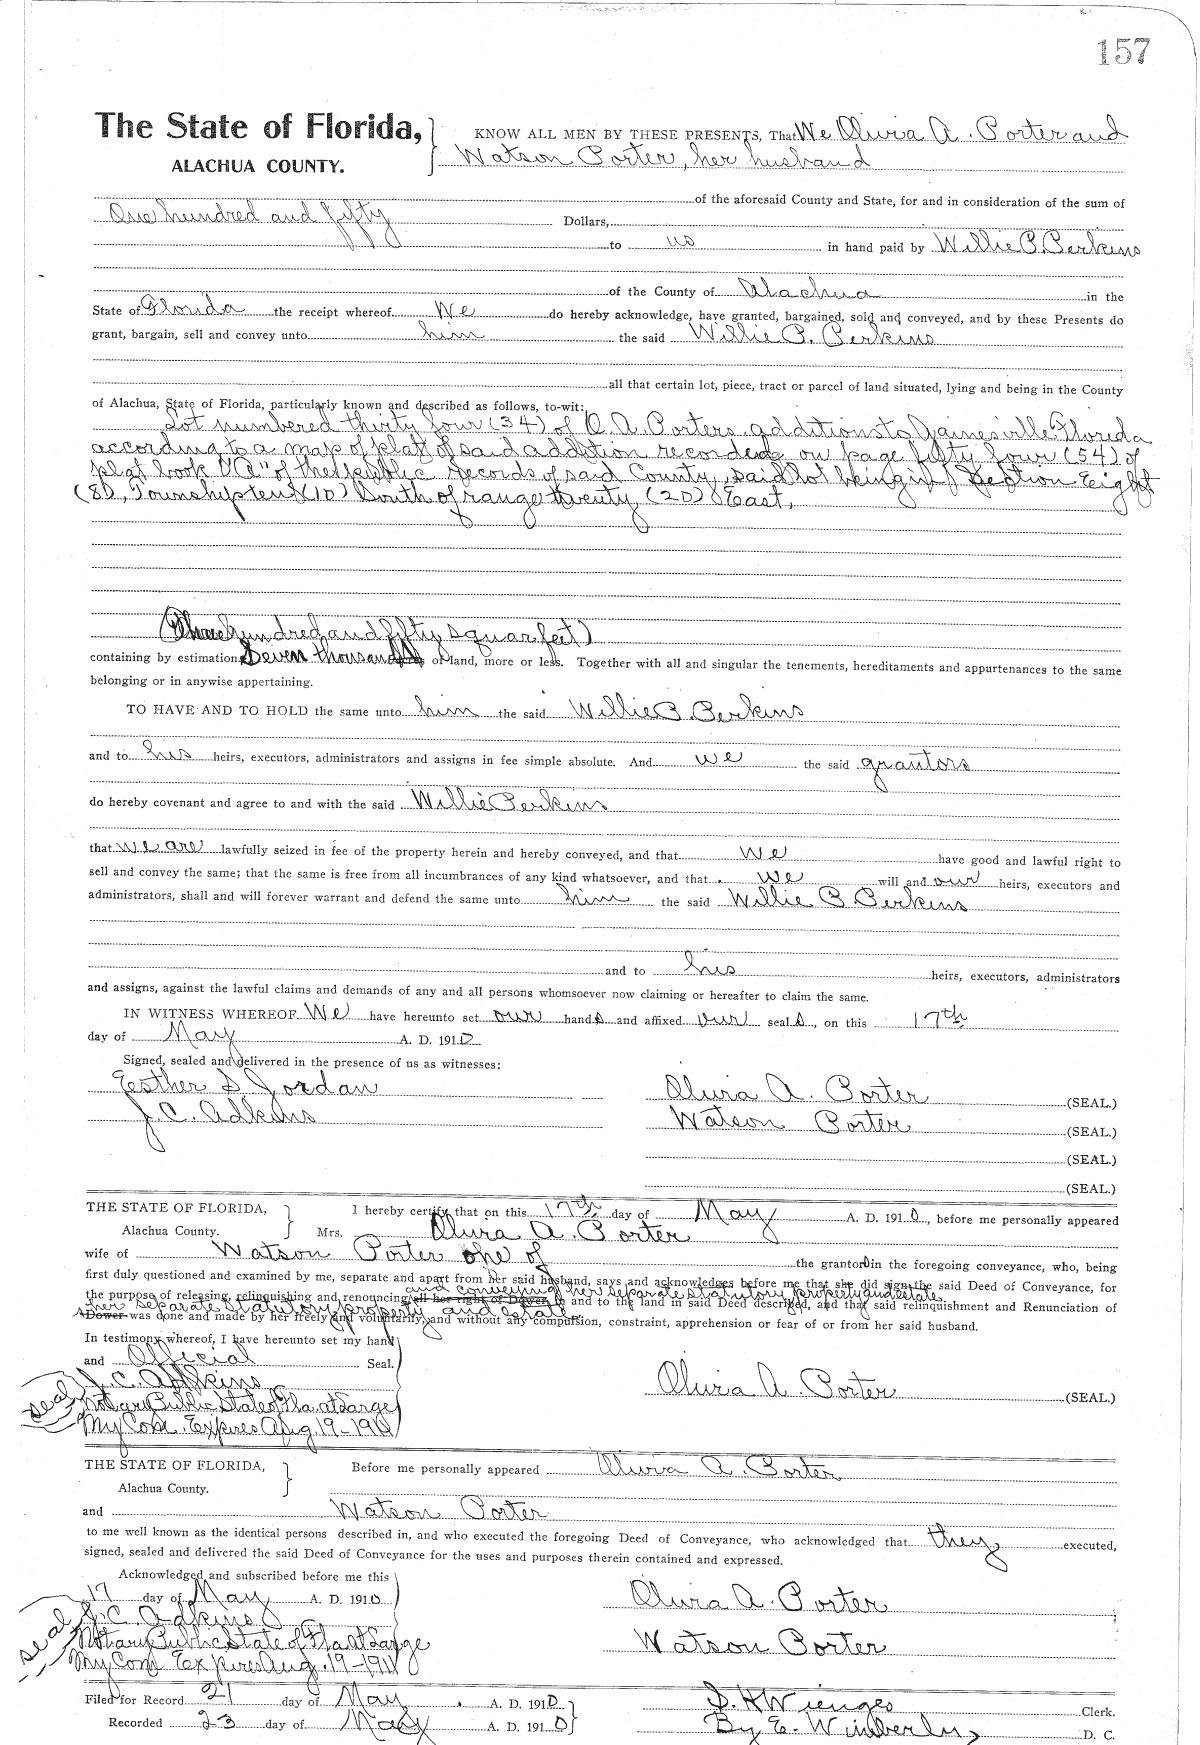 157
The State of Florida, KNOW ALL MEN BY THESE PRESENTS, That We Olivia A. Porter and
ALACHUA COUNTY. Watson Porter, her husband
of the aforesaid County and State, for and in consideration of the sum of
One hundred and fifty Dollars,
to us in hand paid by Willie P. Perkins
of the County of Alachua in the
State of Florida the receipt whereof We do hereby acknowledge, have granted, bargained, sold and conveyed, and by these Presents do
grant, bargain, sell and convey unto him the said Willie P. Perkins
all that certain lot, piece, tract or parcel of land situated, lying and being in the County
of Alachua, State of Florida, particularly known and described as follows, to-wit:
Lot numbered thirty four (34) of O. A. Porters additions to Gainesville Florida
according to a map of plat of said addition recorded on page fifty four (54) of
plat book "A" of the public records of said County, said lot being in Section Eight
(8), Township ten (10) South of range twenty (20) East,
hundred and fifty squar feet)
containing by estimation Seven thousand of land, more or less. Together with all and singular the tenements, hereditaments and appurtenances to the same
belonging or in anywise appertaining.
TO HAVE AND TO HOLD the same unto him the said Willie P. Perkins
and to his heirs, executors, administrators and assigns in fee simple absolute. And we the said grantors
do hereby covenant and agree to and with the said Willie Perkins
that we are lawfully seized in fee of the property herein and hereby conveyed, and that we have good and lawful right to
sell and convey the same; that the same is free from all incumbrances of any kind whatsoever, and that we will and our heirs, executors and
administrators, shall and will forever warrant and defend the same unto him the said Willie P. Perkins
and to his heirs, executors, administrators
and assigns, against the lawful claims and demands of any and all persons whomsoever now claiming or hereafter to claim the same.
IN WITNESS WHEREOF We have hereunto set our hands and affixed our seals, on this 17th
day of May A. D. 1910
Signed, sealed and delivered in the presence of us as witnesses:
Esther S Jordan Olivia A. Porter (SEAL.)
J. C. Adkins Watson Porter (SEAL.)
(SEAL.)
(SEAL.)
THE STATE OF FLORIDA, I hereby certify that on this 17th day of May A. D. 1910, before me personally appeared
Alachua County. Mrs. Olivia A. Porter
wife of Watson Porter one of the grantors in the foregoing conveyance, who, being
first duly questioned and examined by me, separate and apart from her said husband, says and acknowledges before me that she did sign the said Deed of Conveyance, for
and conveying her separate statutory property and estate
the purpose of releasing, relinquishing and renouncing all her right of Dower in and to the land in said Deed described, and that said relinquishment and Renunciation of
her separate statutory property and estate
Dower was done and made by her freely and voluntarily, and without any compulsion, constraint, apprehension or fear of or from her said husband.
In testimony whereof, I have hereunto set my hand
and Official Seal.
J. C. Adkins Olivia A. Porter (SEAL.)
seal Notary Public State of Fla at Large
My Com. Expires Aug. 19-1911
THE STATE OF FLORIDA, Before me personally appeared Olivia A. Porter
Alachua County.
and Watson Porter
to me well known as the identical persons described in, and who executed the foregoing Deed of Conveyance, who acknowledged that they executed,
signed, sealed and delivered the said Deed of Conveyance for the uses and purposes therein contained and expressed.
Acknowledged and subscribed before me this
17 day of May A. D. 1910 Olivia A. Porter
seal J. C. Adkins
Notary Public State of Fla at Large Watson Porter
My Com Expires Aug. 19-1911
Filed for Record 21 day of May A. D. 1910 S. H Wienges Clerk.
Recorded 23 day of May A. D. 1910 By E. Wimberly, D. C.